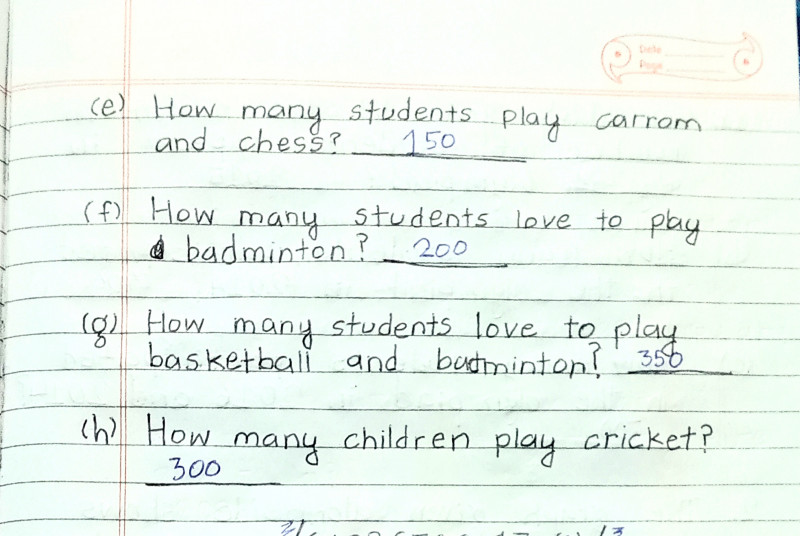 Date
Page
(e) How many students play carrom
and chess? 150
(f) How many students love to play
badminton? 200
(g) How many students love to play
basketball and badminton? 350
(h) How many children play cricket?
300